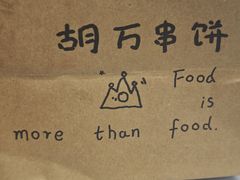 胡万串饼
Food
is
more than food.